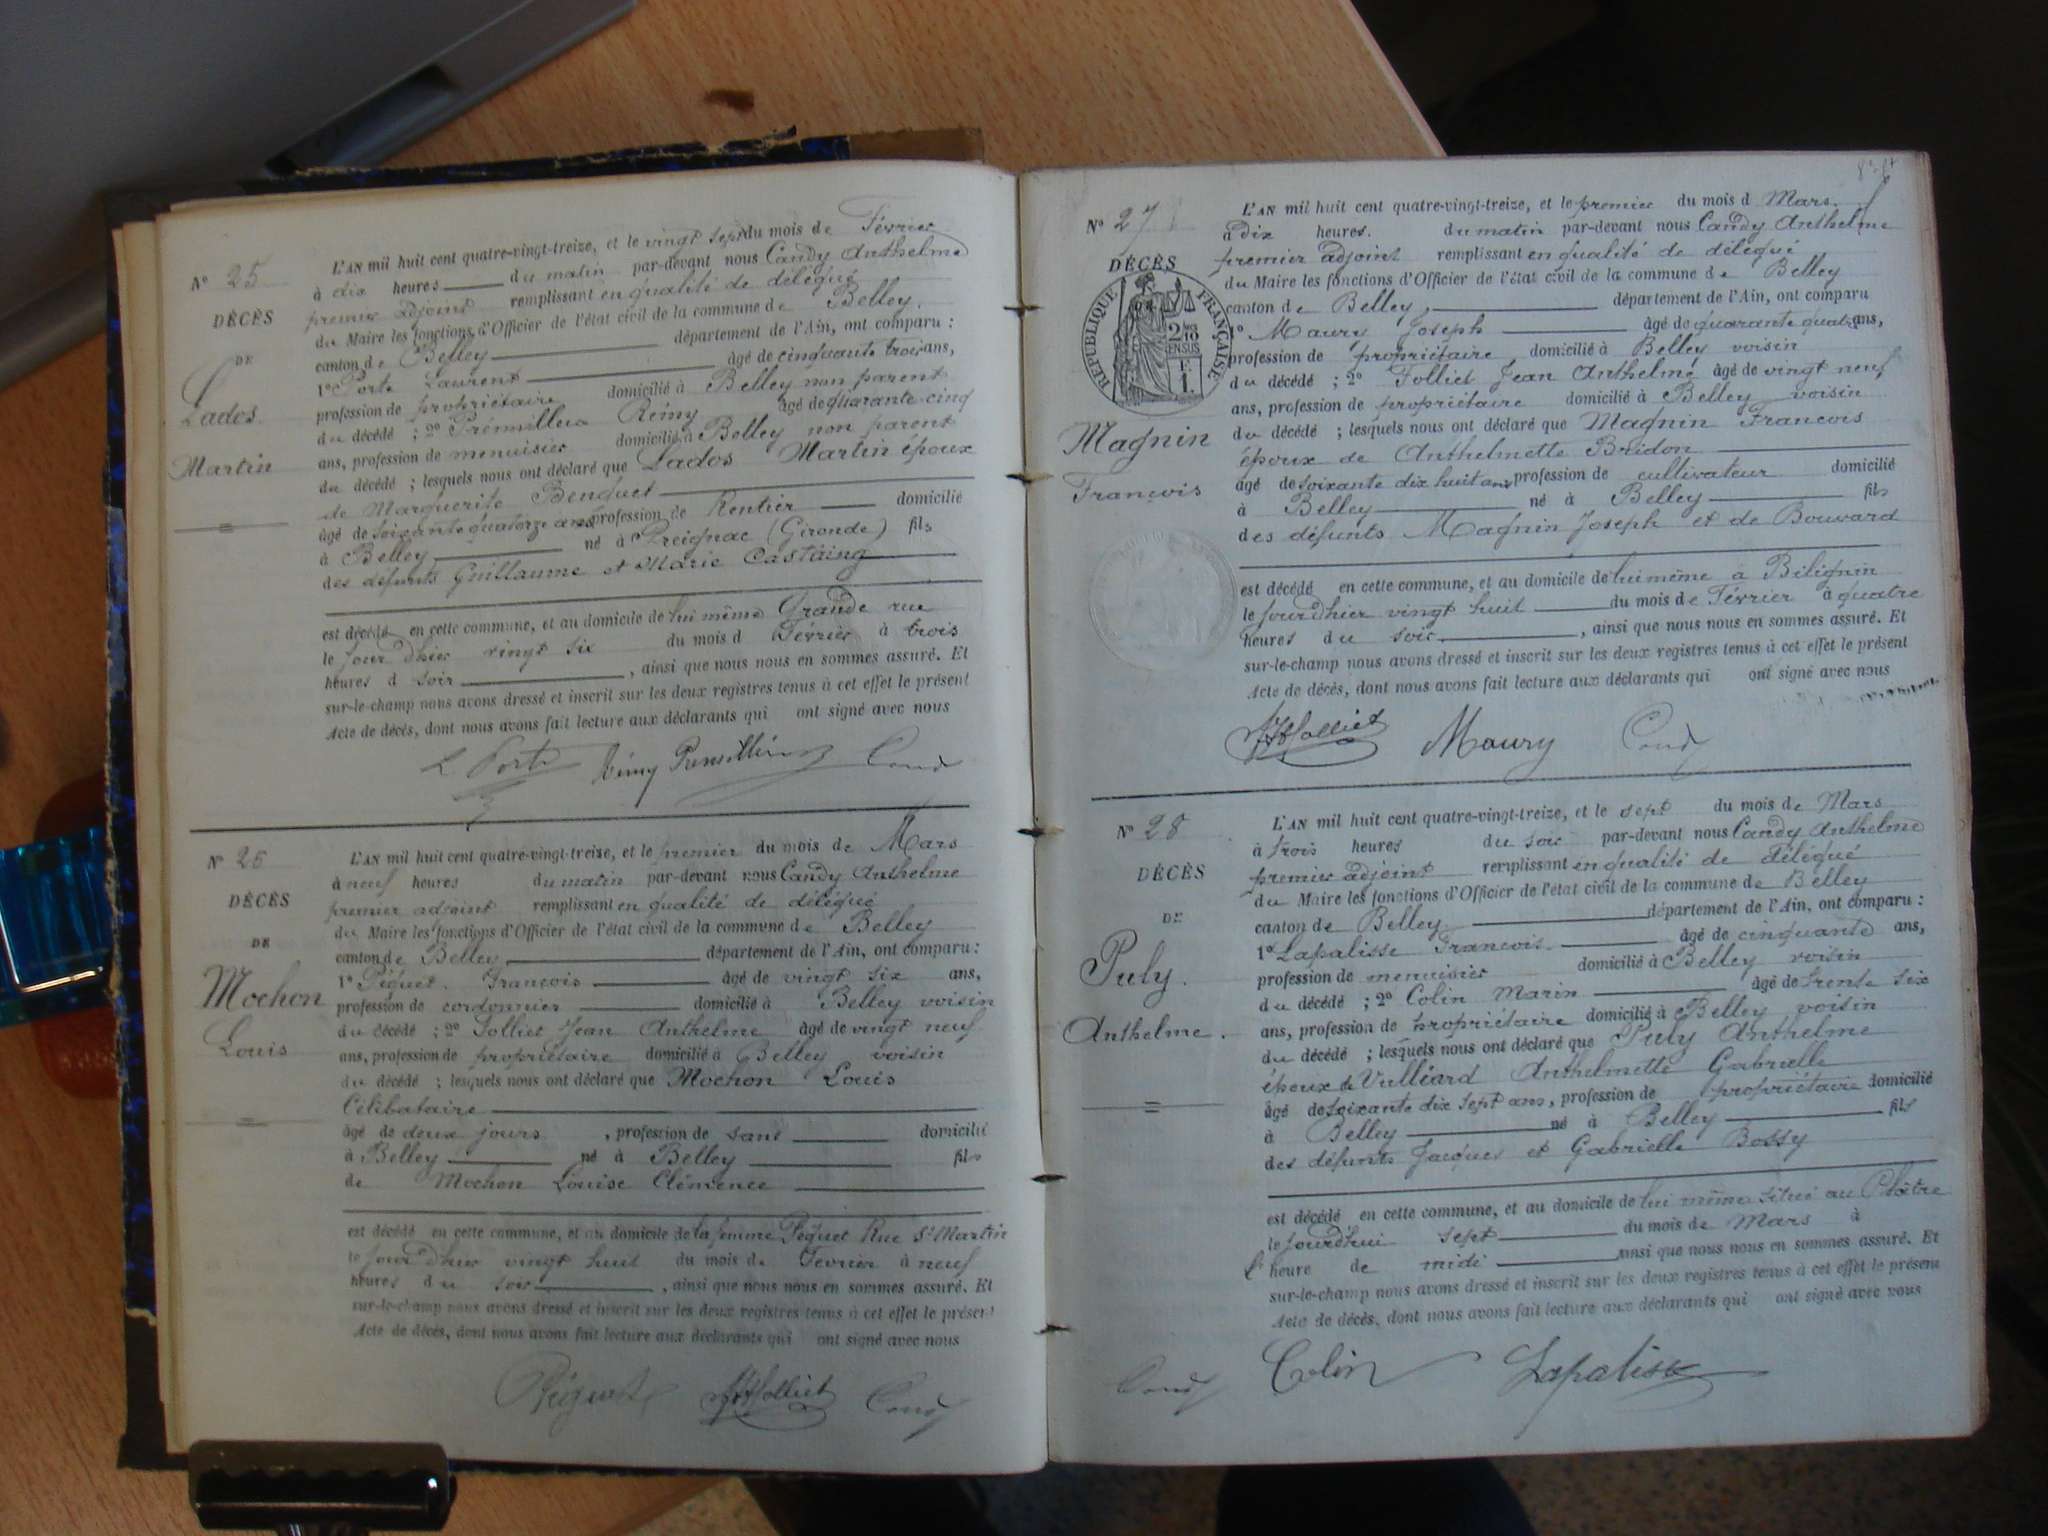 N° 25
DÉCÈS
DE
Lados
Martin
L'AN mil huit cent quatre-vingt-treize, et le vingt sept du mois de Février
à dix heures du matin par-devant nous Candy Anthelme
premier adjoint remplissant en qualité de délégué
du Maire les fonctions d'Officier de l'état civil de la commune de Belley.
canton de Belley département de l'Ain, ont comparu :
1° Porte Laurent âgé de cinquante trois ans,
profession de propriétaire domicilié à Belley non parent
du décédé ; 2° Rémy âgé de quarante-cinq
ans, profession de menuisier domicilié à Belley non parent
du décédé ; lesquels nous ont déclaré que Lados Martin époux
de Marguerite Benquet
âgé de soixante quatorze ans profession de Rentier domicilié
à Belley né à Preignac (Gironde) fils
des défunts Guillaume et Marie Castaing
est décédé en cette commune, et au domicile de lui même Grande rue
le jour d'hier vingt six du mois d Février à trois
heures d soir , ainsi que nous nous en sommes assuré. Et
sur-le-champ nous avons dressé et inscrit sur les deux registres tenus à cet effet le présent
Acte de décès, dont nous avons fait lecture aux déclarants qui ont signé avec nous
L Porte Rémy Candy
N° 26
DÉCÈS
DE
Mochon
Louis
L'AN mil huit cent quatre-vingt-treize, et le premier du mois de Mars
à neuf heures du matin par-devant nous Candy Anthelme
premier adjoint remplissant en qualité de délégué
du Maire les fonctions d'Officier de l'état civil de la commune de Belley
canton de Belley département de l'Ain, ont comparu :
1° Péguet François âgé de vingt six ans,
profession de cordonnier domicilié à Belley voisin
du décédé ; 2° Folliet Jean Anthelme âgé de vingt neuf
ans, profession de propriétaire domicilié à Belley voisin
du décédé ; lesquels nous ont déclaré que Mochon Louis
Célibataire
âgé de deux jours , profession de sans domicilié
à Belley né à Belley fils
de Mochon Louise Clémence
est décédé en cette commune, et au domicile de la femme Péguet Rue St Martin
le jour d'hier vingt huit du mois de Fevrier à neuf
heures du soir , ainsi que nous nous en sommes assuré. Et
sur-le-champ nous avons dressé et inscrit sur les deux registres tenus à cet effet le présent
Acte de décès, dont nous avons fait lecture aux déclarants qui ont signé avec nous
Péguet JAFolliet Candy
N° 27
DÉCÈS
RÉPUBLIQUE FRANÇAISE
2/10 EN SUS
1F
Magnin
François
L'AN mil huit cent quatre-vingt-treize, et le premier du mois d Mars.
à dix heures. du matin par-devant nous Candy Anthelme
premier adjoint remplissant en qualité de délégué
du Maire les fonctions d'Officier de l'état civil de la commune de Belley
canton de Belley, département de l'Ain, ont comparu
1° Maury Joseph âgé de quarante quatre ans,
profession de propriétaire domicilié à Belley voisin
du décédé ; 2° Folliet Jean Anthelme âgé de vingt neuf
ans, profession de propriétaire domicilié à Belley voisin
du décédé ; lesquels nous ont déclaré que Magnin François
époux de Anthelmette Bridon
âgé de soixante dix huit ans profession de cultivateur domicilié
à Belley né à Belley fils
des défunts Magnin Joseph et de Bouvard
est décédé en cette commune, et au domicile de lui même à Billignin
le jour d'hier vingt huit du mois de Février à quatre
heures du soir , ainsi que nous nous en sommes assuré. Et
sur-le-champ nous avons dressé et inscrit sur les deux registres tenus à cet effet le présent
Acte de décès, dont nous avons fait lecture aux déclarants qui ont signé avec nous
JAFolliet Maury Candy
N° 28
DÉCÈS
DE
Puly.
Anthelme.
L'AN mil huit cent quatre-vingt-treize, et le sept du mois de Mars
à trois heures du soir par-devant nous Candy Anthelme
premier adjoint remplissant en qualité de délégué
du Maire les fonctions d'Officier de l'état civil de la commune de Belley
canton de Belley département de l'Ain, ont comparu :
1° Lapalisse François âgé de cinquante ans,
profession de menuisier domicilié à Belley voisin
du décédé ; 2° Colin Marin âgé de trente six
ans, profession de propriétaire domicilié à Belley voisin
du décédé ; lesquels nous ont déclaré que Puly Anthelme
époux de Vulliard Anthelmette Gabrielle
âgé de soixante dix sept ans, profession de propriétaire domicilié
à Belley né à Belley fils
des défunts Jacques et Gabrielle Bossy
est décédé en cette commune, et au domicile de lui même situé au
le jourd'hui sept du mois de Mars à
l'heure de midi ainsi que nous nous en sommes assuré. Et
sur-le-champ nous avons dressé et inscrit sur les deux registres tenus à cet effet le présent
Acte de décès, dont nous avons fait lecture aux déclarants qui ont signé avec nous
Candy Colin Lapalisse